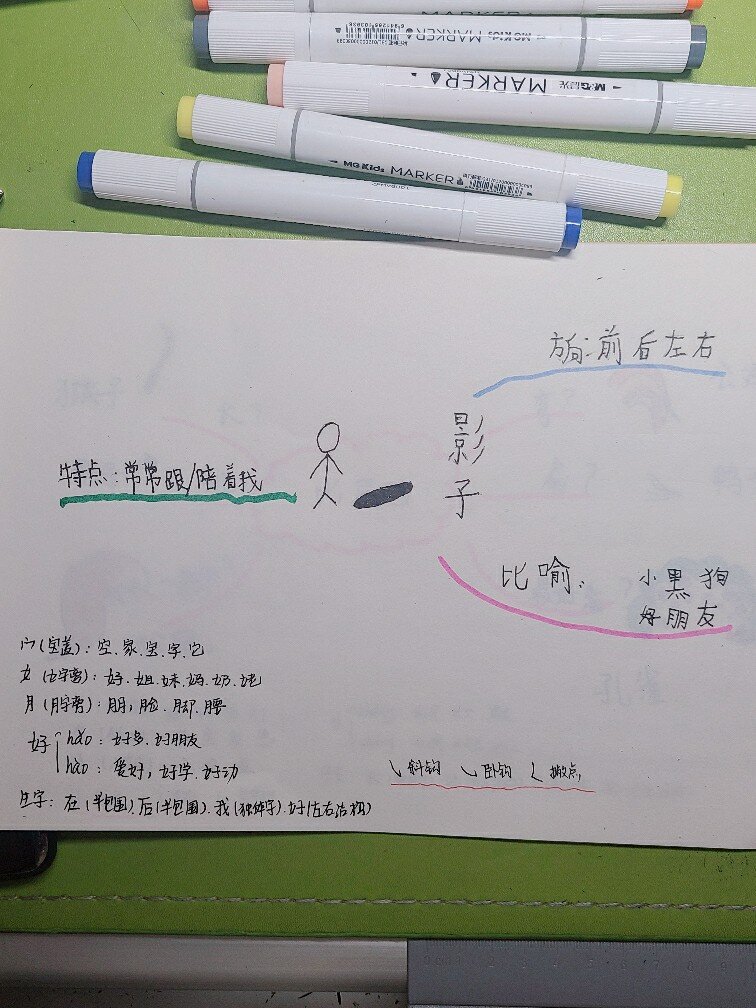 MARKER
MGKids MARKER
M&G晨光 MARKER
MGKids MARKER
方向:前后左右
影子
特点:常常跟/陪着我
比喻:
小黑狗
好朋友
宀(宝盖):空.家.宝.字.它
女(女字旁):好.姐.妹.妈.奶.她
月(月字旁):朋,脸.脚.腰
好 hǎo:好多.好朋友
hào:爱好,好学.好动
㇂斜钩 ㇃卧钩 ㇛撇点
生字:在(半包围).后(半包围).我(独体字).好(左右结构)